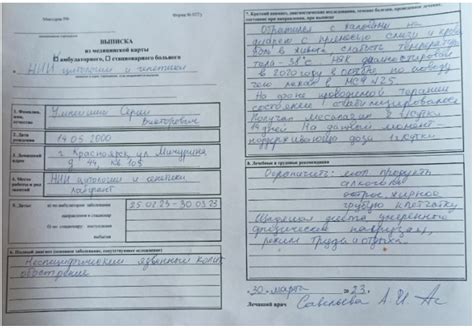 Минздрав РФ
Форма № 027/у
ВЫПИСКА
из медицинской карты
амбулаторного, стационарного больного
НИИ цитологии и генетики
1. Фамилия, имя, отчество
Викторович
2. Дата рождения
14.05.2000
3. Домашний адрес
г. Красноярск ул. Мичурина
д 44 кв 105
4. Место работы и род занятий
НИИ цитологии и генетики
лаборант
5. Даты: а) по амбулатории: заболевания
25.02.23 - 30.03.23
направления в стационар
б) по стационару: поступления
выбытия
6. Полный диагноз (основное заболевание, сопутствующее осложнение)
Неспецифический язвенный колит
обострение
7. Краткий анамнез, диагностические исследования, течение болезни, проведенное лечение, состояние при направлении, при выписке
Обратился с жалобами на
диарею с примесью слизи и крови
боль в животе, слабость температура
тела - 38°С НЯК диагностирован
в 2020 году
На фоне проводимой терапии
состояние стабилизировалось
Получал Месалазин
дней На данный момент
дозы
8. Лечебные и трудовые рекомендации
Ограничить: мол продукты
алкоголь
острое, жирное
грубую клетчатку
Щадящая диета умеренные
физические нагрузки,
режим труда и отдыха.
30 марта 23 г.
Лечащий врач Савельева А.И.